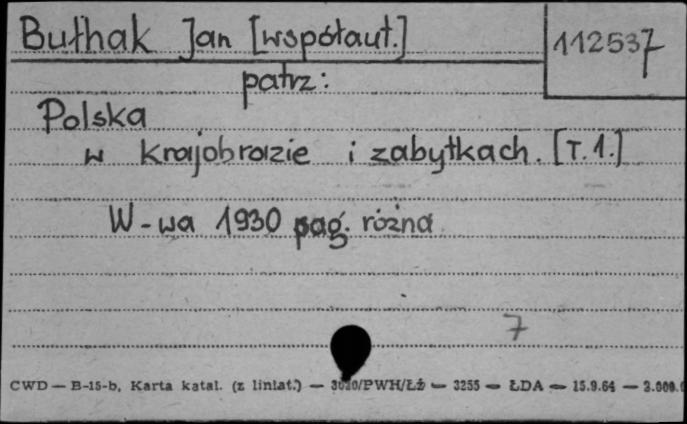 Bułhak Jan [współaut.]
112537
patrz:
Polska
w krajobrazie i zabytkach. [T. 1.]
W-wa 1930 pag. różna
7
CWD — B-15-b, Karta katal. (z liniat.) — 3020/PWH/Łź — 3255 — ŁDA — 15.9.64 — 2.000.0